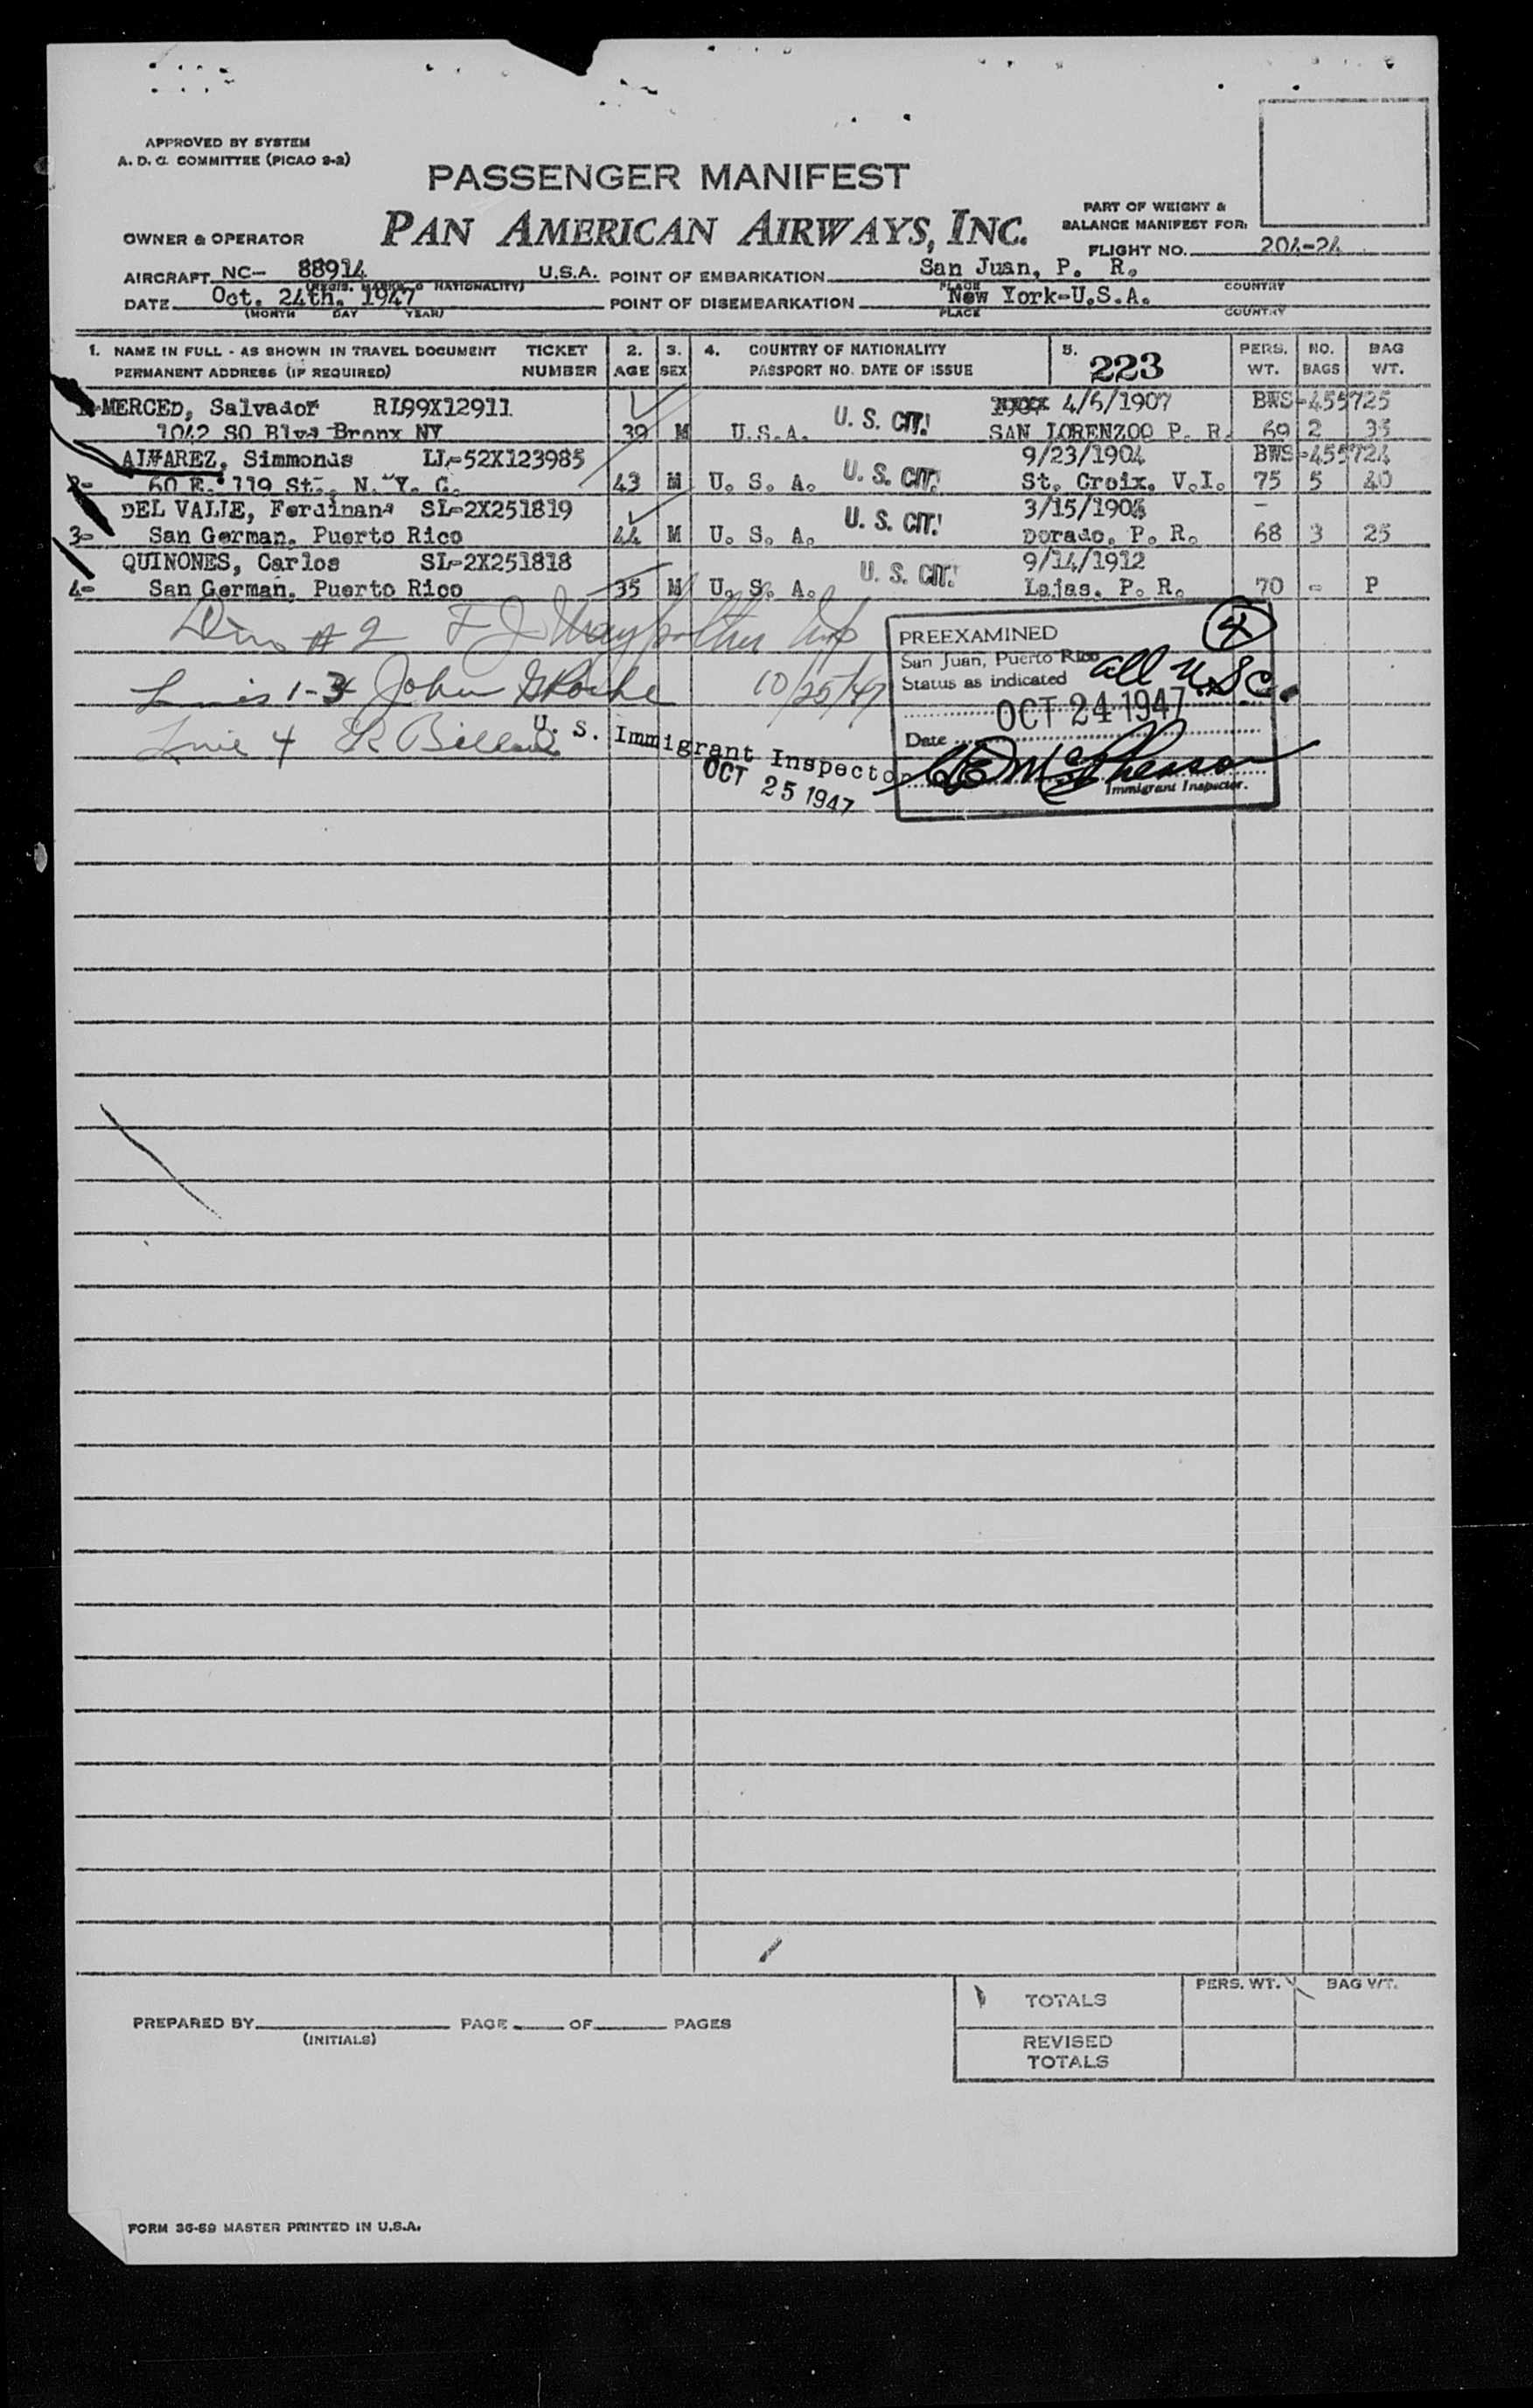 APPROVED BY SYSTEM
A. D. C. COMMITTEE (PICAO 9-2)
PASSENGER MANIFEST
PAN AMERICAN AIRWAYS, INC.
PART OF WEIGHT &
BALANCE MANIFEST FOR:
OWNER & OPERATOR
FLIGHT NO. 204-24
AIRCRAFT NC- 88914 U.S.A. POINT OF EMBARKATION San Juan, P. R.
(REGIS. MARKS & NATIONALITY) PLACE COUNTRY
DATE Oct. 24th. 1947 POINT OF DISEMBARKATION New York-U.S.A.
(MONTH DAY YEAR) PLACE COUNTRY
1. NAME IN FULL - AS SHOWN IN TRAVEL DOCUMENT TICKET 2. 3. 4. COUNTRY OF NATIONALITY 5. PERS. NO. BAG
PERMANENT ADDRESS (IF REQUIRED) NUMBER AGE SEX PASSPORT NO. DATE OF ISSUE 223 WT. BAGS WT.
MERCED, Salvador RL99X12911 4/6/1907 BWS-455725
1042 SO Blvd Bronx NY 39 M U.S.A. U. S. CIT. SAN LORENZOO P. R. 69 2 35
ALVAREZ, Simmonds LL-52X123985 9/23/1904 BWS-455724
2- 60 E. 119 St., N. Y. C. 43 M U. S. A. U. S. CIT. St. Croix, V.I. 75 5 40
DEL VALLE, Ferdinand SL-2X251819 3/15/1903 -
3- San German, Puerto Rico 44 M U. S. A. U. S. CIT. Dorado, P. R. 68 3 25
QUINONES, Carlos SL-2X251818 9/14/1912
4- San German, Puerto Rico 35 M U. S. A. U. S. CIT. Lajas, P. R. 70 - P
# 2 F J
1-3 John 10/25/47
Line 4
U. S. Immigrant Inspector
OCT 25 1947
PREEXAMINED 4
San Juan, Puerto Rico
Status as indicated all U.S.C.
OCT 24 1947
Date
McPherson
Immigrant Inspector.
TOTALS PERS. WT. BAG WT.
PREPARED BY PAGE OF PAGES
(INITIALS)
REVISED
TOTALS
FORM 36-59 MASTER PRINTED IN U.S.A.